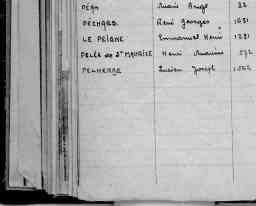 PÉAN Marie Ange 32
PÉCHARD René Georges 1031
LE PEIGNÉ Emmanuel Henri 1281
PELÉE de ST MAURICE Henri Maxime 572
PELHERBE Lucien Joseph